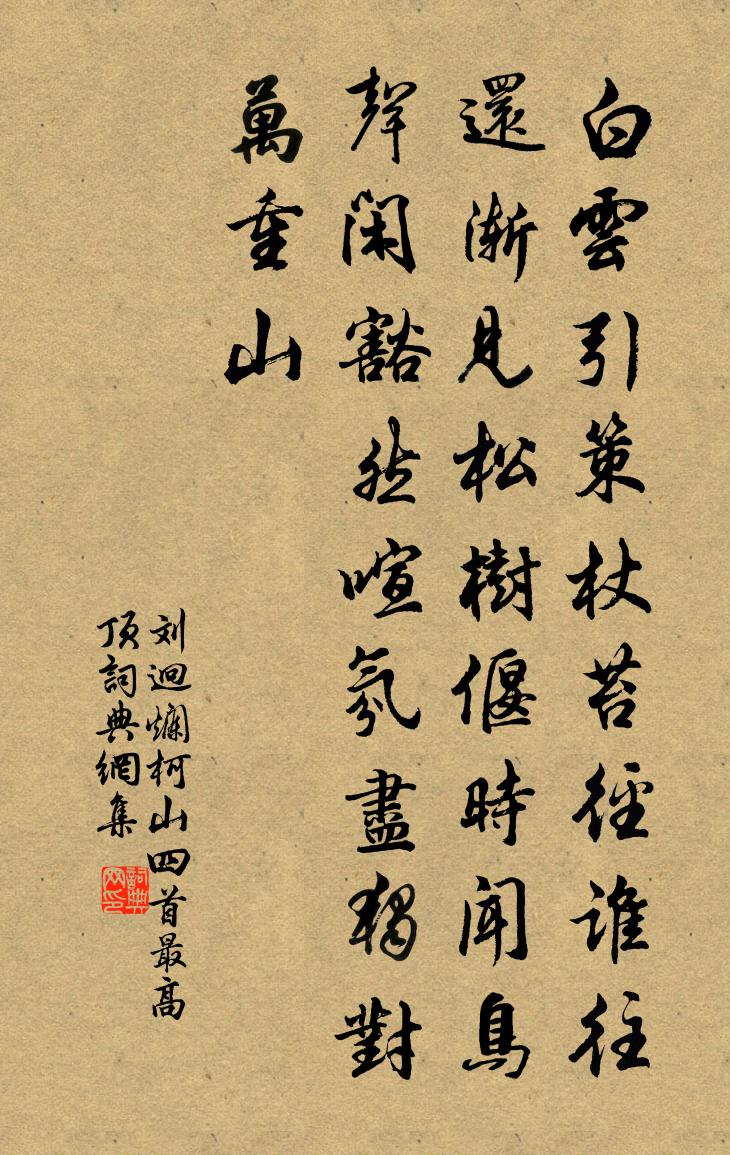 白雲引策杖苔徑誰往
還漸見松樹偃時聞鳥
聲閑豁然喧氛盡獨對
萬重山
刘迥爛柯山四首最高
頂詞典網集
詞典網印